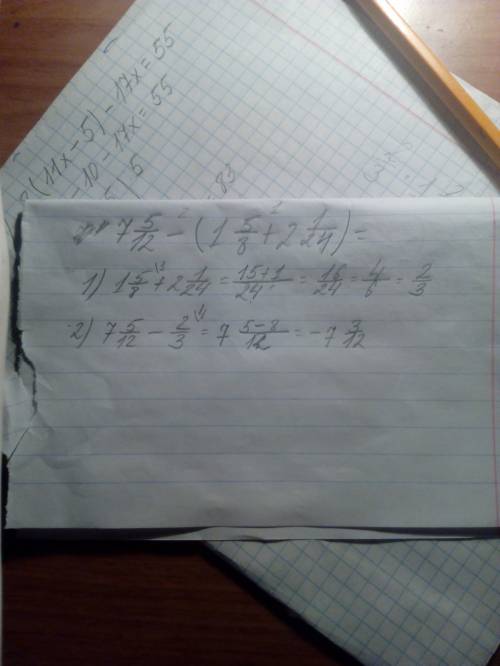 (11x-5)-17x=55
-10-17x=55
5
=83
7 5/12 - (1 5/8 + 2 1/24) =
1) 1 5/8 + 2 1/24 = 15+1/24 = 16/24 = 4/6 = 2/3
2) 7 5/12 - 2/3 = 7 5-8/12 = -7 3/12